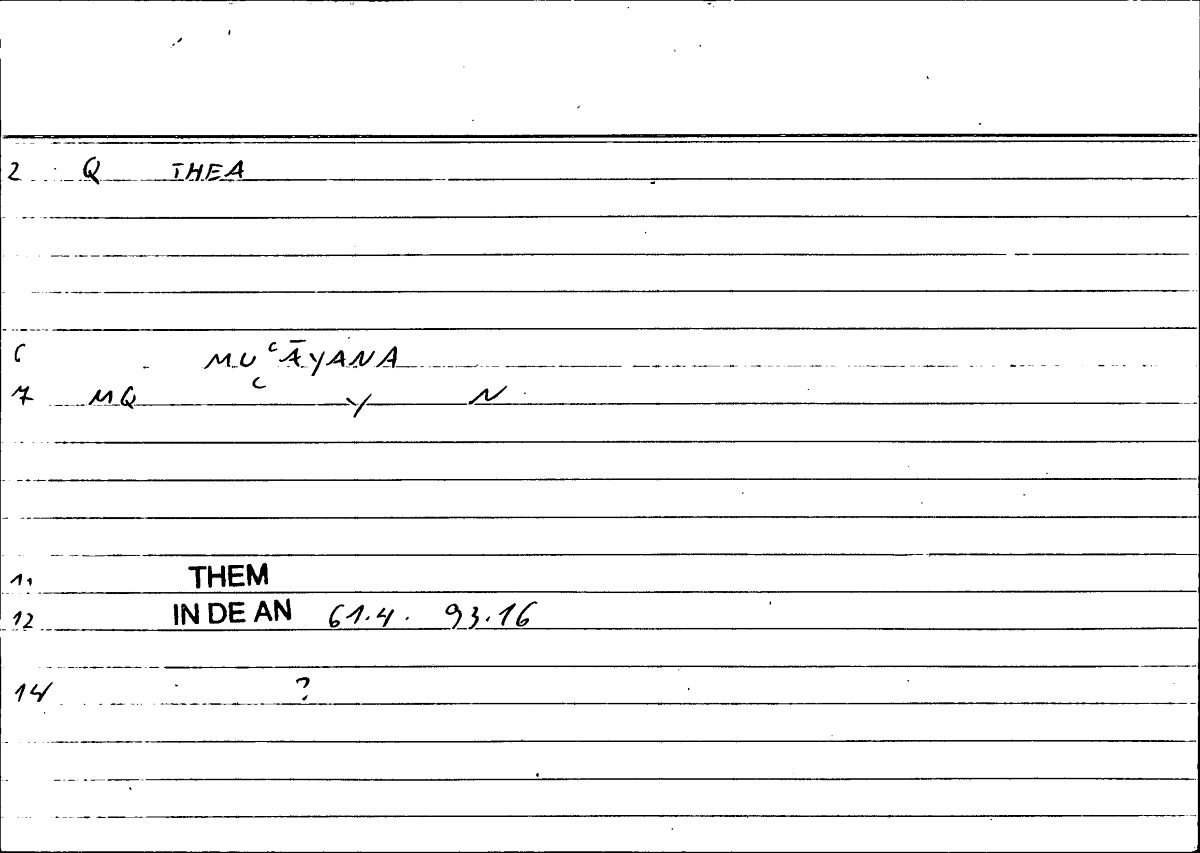 2 Q THEA
6 MUʿĀYANA
7 MQ ʿ Y N
11 THEM
12 IN DE AN 61.4. 93.16
14 ?